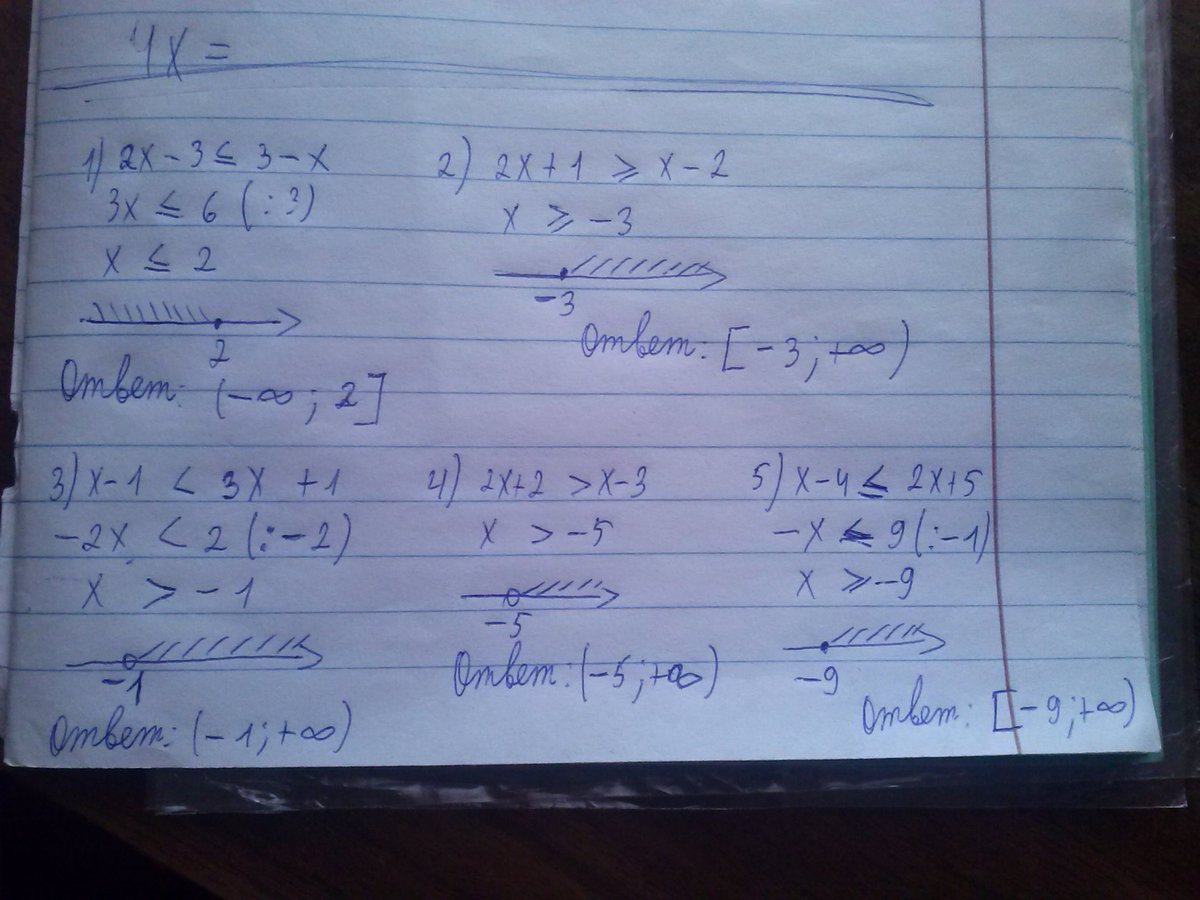 4x =
1) 2x - 3 ≤ 3 - x
3x ≤ 6 (:3)
x ≤ 2
2
Ответ: (-∞; 2]
2) 2x + 1 ≥ x - 2
x ≥ -3
-3
Ответ: [-3; +∞)
3) x - 1 < 3x + 1
-2x < 2 (:-2)
x > -1
-1
Ответ: (-1; +∞)
4) 2x+2 > x-3
x > -5
-5
Ответ: (-5; +∞)
5) x - 4 ≤ 2x+5
-x ≤ 9 (:-1)
x ≥ -9
-9
Ответ: [-9; +∞)